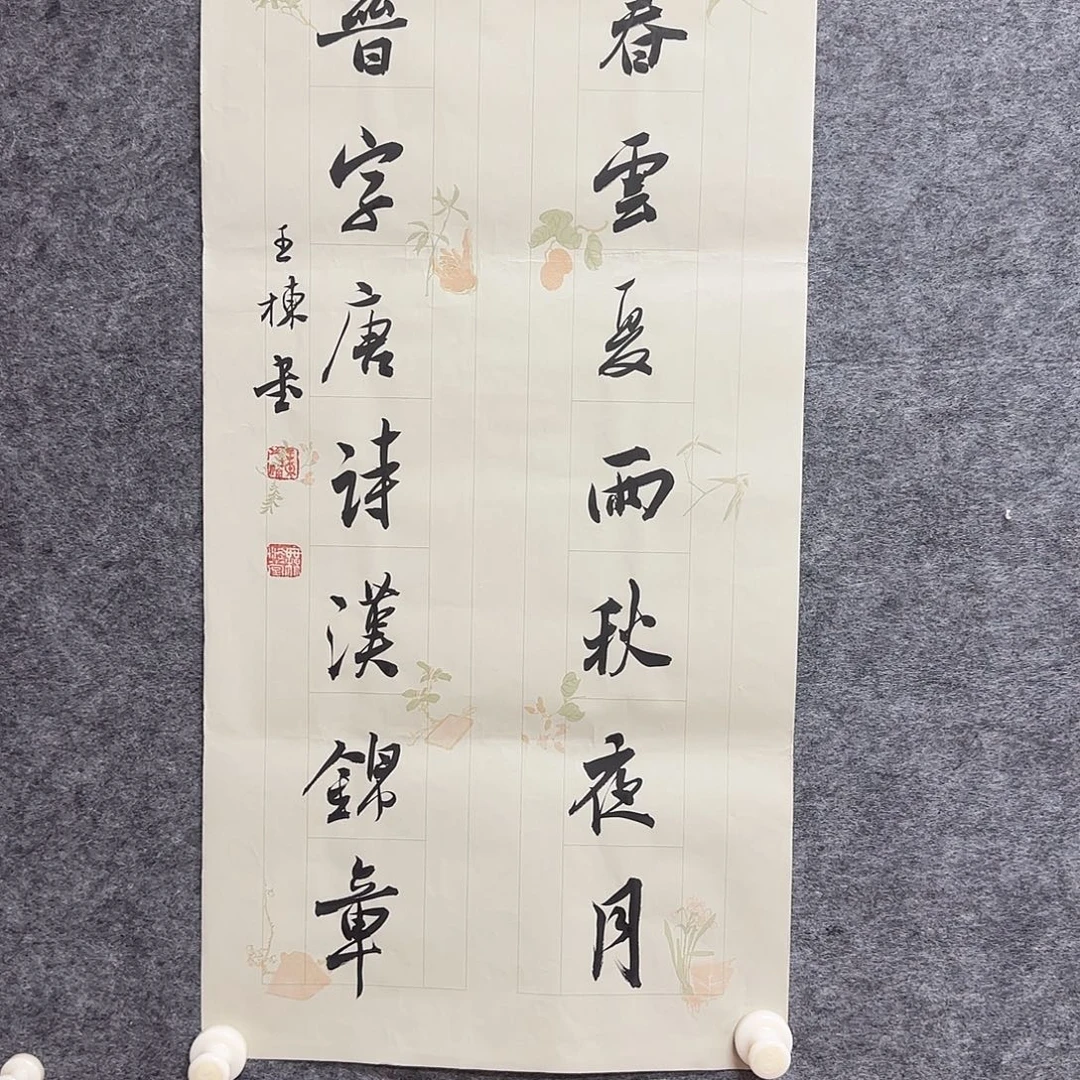 春雲夏雨秋夜月
晉字唐詩漢錦章
王棟書